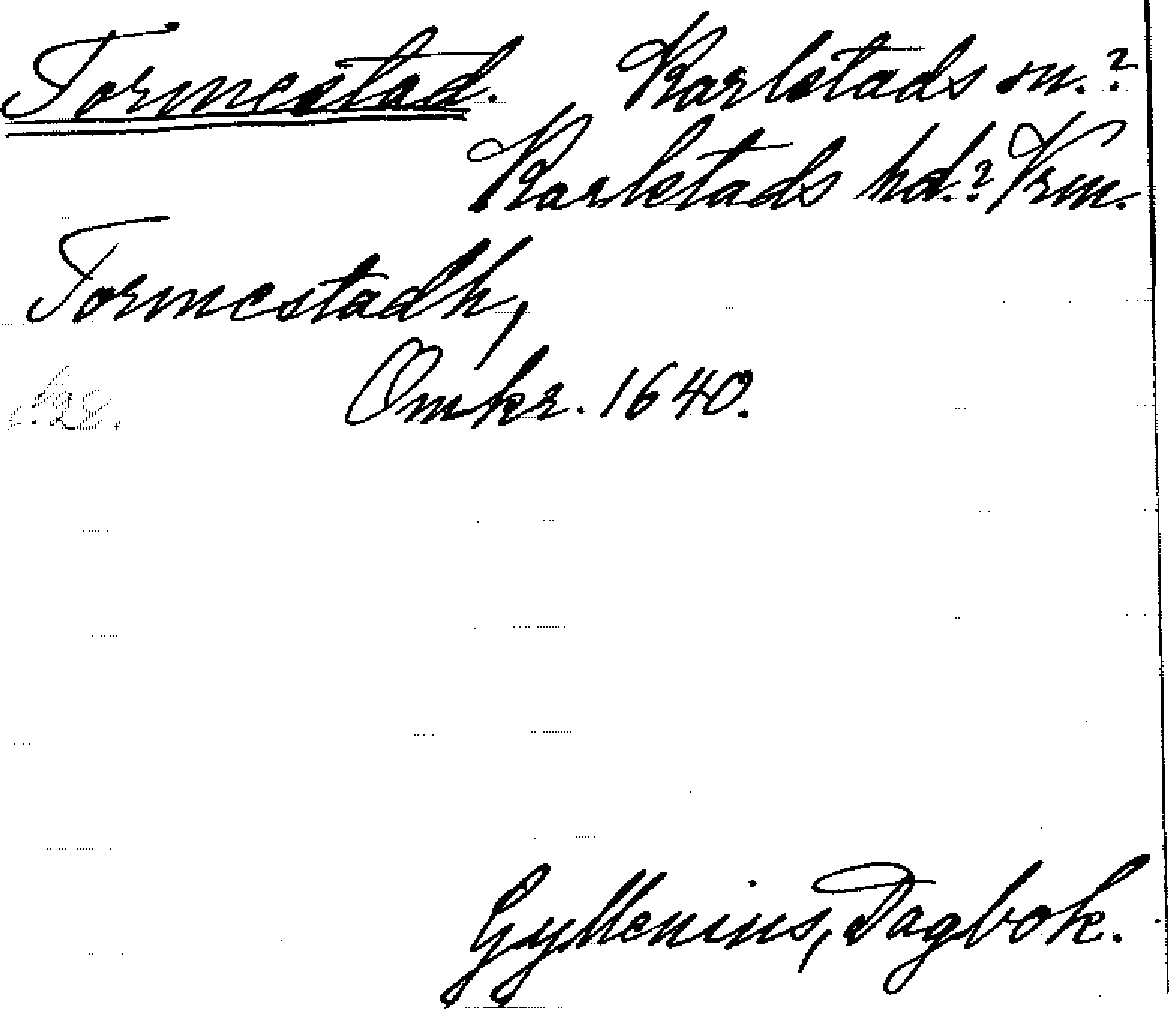 Tormestad. Karlstads sn.?
Karlstads hd.? Vrm.
Tormestadh,
Omkr. 1640.
Gyllenius, Dagbok.